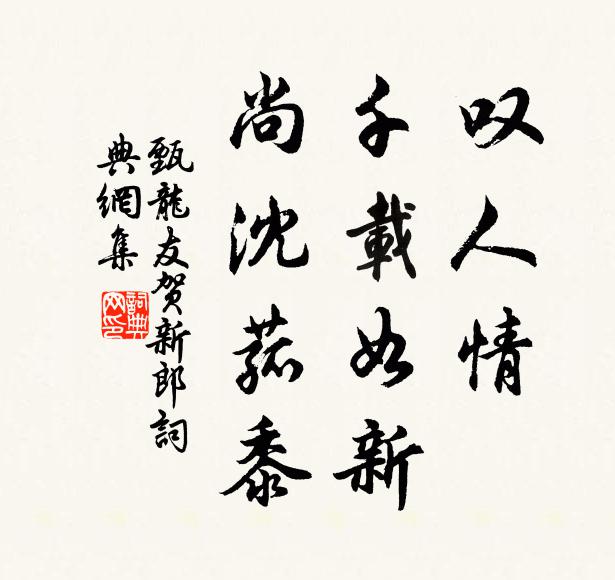 叹人情
千載如新
尚沈菰黍
甄龍友賀新郎詞
典網集
詞典网印